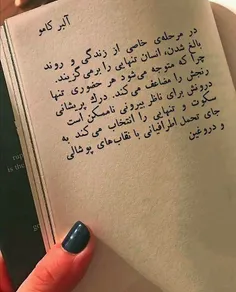 آلبر کامو
در مرحله‌ی خاصی از زندگی و روند
بالغ شدن، انسان تنهایی را برمی‌گزیند.
چرا که متوجه می‌شود هر حضوری تنها
رنجش را مضاعف می‌کند. درک پریشانی
درونش برای ناظر بیرونی ناممکن است
سکوت و تنهایی را انتخاب می‌کند به
جای تحمل اطرافیانی با نقاب‌های پوشالی
و دروغین